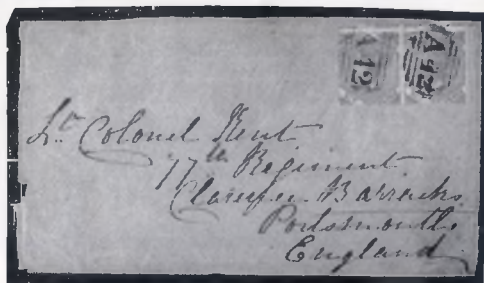 A 12 A 12
Lt Colonel Kent
77th Regiment
Clarence Barracks
Portsmouth
England